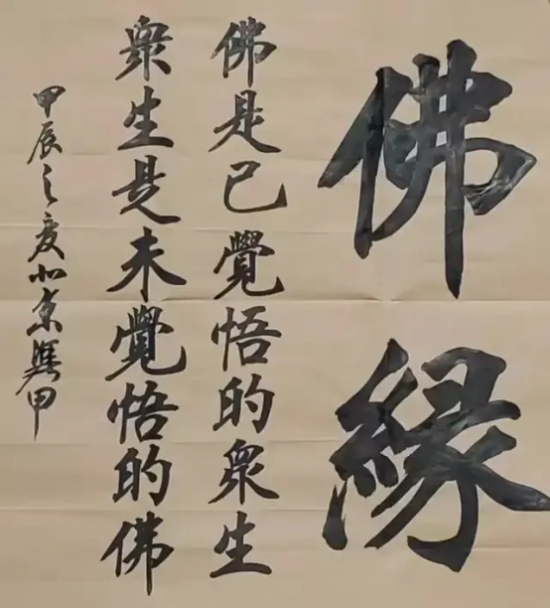 佛緣
佛是已覺悟的衆生
衆生是未覺悟的佛
甲辰之夏北京甲